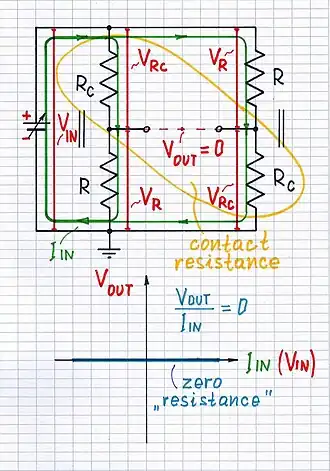 R_C
V_RC
V_R
R
+
-
V_IN
||
V_OUT = 0
||
R
V_R
V_RC
R_C
I_IN
contact
resistance
V_OUT
V_OUT / I_IN = 0
I_IN (V_IN)
zero
„resistance"